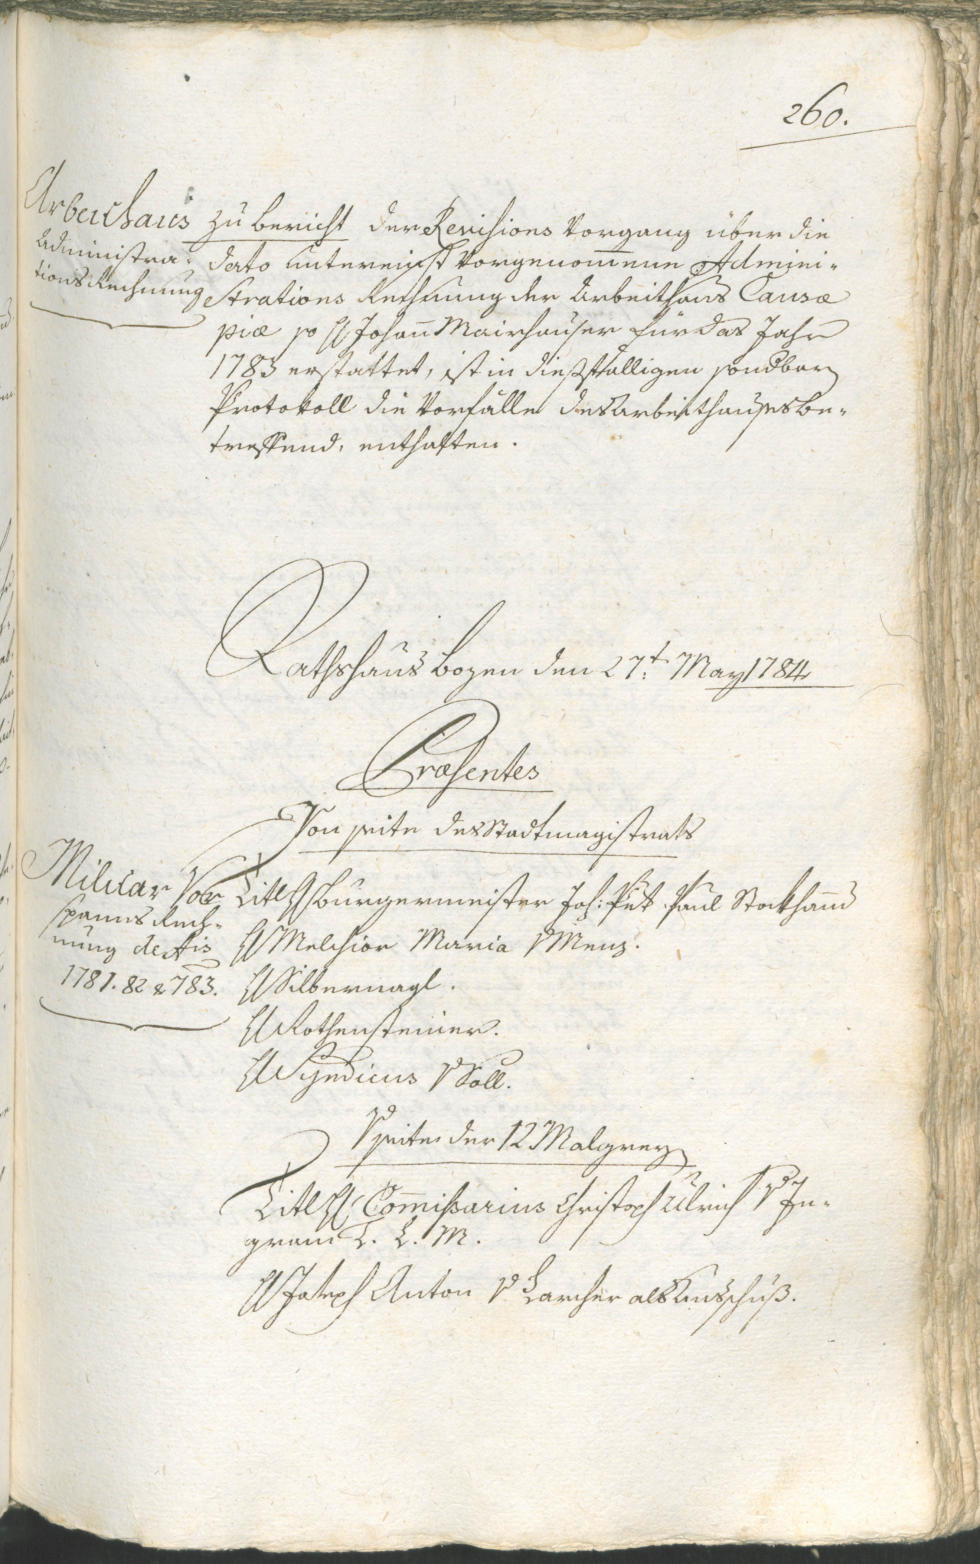 260.
Arbeithaus
Administra¬
tions Rechnung
zu bericht der Revisions Vorgang über die
dato untereinst vorgenom̅ene Admini¬
strations Rechnung der Arbeithaus Causæ
piæ so H Johan̅ Mairhauser für das Jahr
1783 erstattet, ist in dießfälligen sondbarn
Protokoll die Vorfälle des Arbeithauses be¬
treffend, enthalten.
Rathshaus Bozen den 27t. May 1784
Præsentes
Von seite des Stadtmagistrats
Militar Vor
spanns Rech¬
nung de Ais
1781. 82 & 783.
Titl H Burgermeister Joh: Pet Paul Stockham̅
H Melchior Maria v Menz.
H Silbernagl.
H Rothensteiner.
H Syndicus v Söll.
V seite der 12 Malgreyn
Titl H Com̅issarius Christoph Ulrich v In¬
gram T. L. M.
H Joseph Anton v Larcher als Ausschuß.